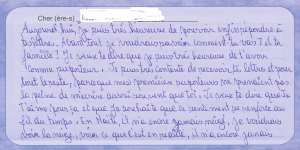 Cher (ère-s)
Aujourd'hui, Je suis très heureuse de pouvoir enfin répondre à
ta lettre. Avant tout je voudrais savoir comment tu vas? et ta
famille? Je veux te dire que je suis très heureuse de t'avoir
comme supporteur. Je suis très contente de recevoir ta lettre et pour
tout le reste, parce que mes premières supporteurs ne prenaient pas
la peine de m'écrire aussi souvent que toi. Je veux te dire que je
t'aime pour ça et que je souhaite que ce sentiment se renforce au
fil du temps. En Haïti il n'a encore jamais neigé, Je voudrais
voir la neige, voir ce que c'est en réalité, il n'a encore jamais